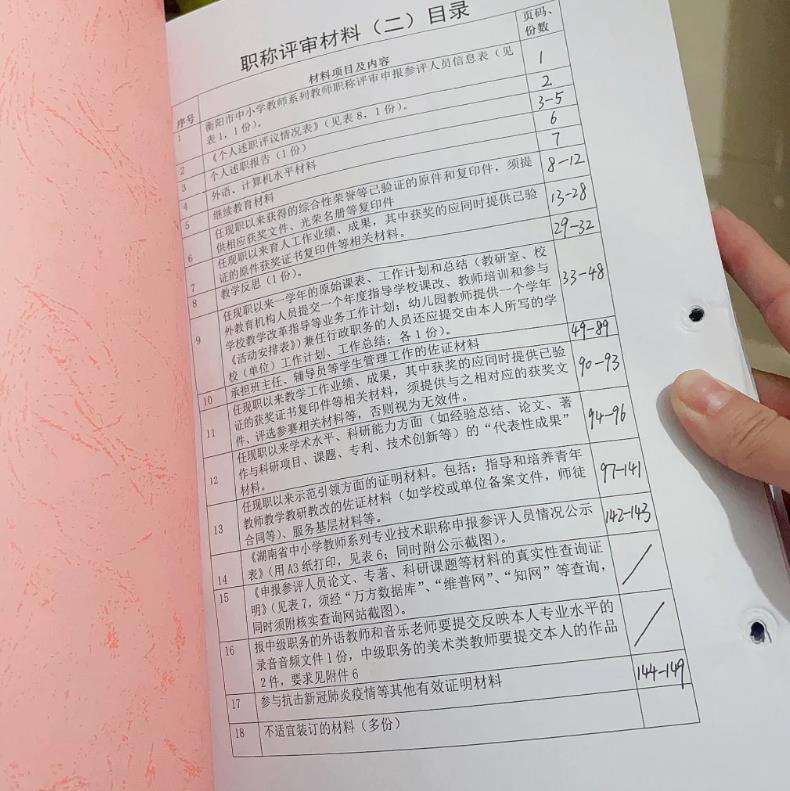 职称评审材料（二）目录
序号
材料项目及内容
页码、
份数
1
衡阳市中小学教师系列教师职称评审申报参评人员信息表（见
表1，1份）。
1
2
《个人述职评议情况表》（见表8，1份）。
2
3
个人述职报告（1份）
3-5
4
外语、计算机水平材料
6
5
继续教育材料
7
6
任现职以来获得的综合性荣誉等已验证的原件和复印件，须提
供相应获奖文件、光荣名册等复印件
8-12
7
任现职以来育人工作业绩、成果，其中获奖的应同时提供已验
证的原件获奖证书复印件等相关材料。
13-28
8
教学反思（1份）。
29-32
9
任现职以来一学年的原始课表、工作计划和总结（教研室、校
外教育机构人员提交一个年度指导学校课改、教师培训和参与
学校教学改革指导等业务工作计划；幼儿园教师提供一个学年
《活动安排表》）兼任行政职务的人员还应提交由本人所写的学
校（单位）工作计划、工作总结；各1份）。
33-48
10
承担班主任、辅导员等学生管理工作的佐证材料
49-89
11
任现职以来教学工作业绩、成果，其中获奖的应同时提供已验
证的获奖证书复印件等相关材料，须提供与之相对应的获奖文
件、评选参赛相关材料等，否则视为无效件。
90-93
12
任现职以来学术水平、科研能力方面（如经验总结、论文、著
作与科研项目、课题、专利、技术创新等）的“代表性成果”
材料。
94-96
13
任现职以来示范引领方面的证明材料。包括：指导和培养青年
教师教学教研教改的佐证材料（如学校或单位备案文件，师徒
合同等）、服务基层材料等。
97-141
14
《湖南省中小学教师系列专业技术职称申报参评人员情况公示
表》（用A3纸打印，见表6；同时附公示截图）。
142-143
15
《申报参评人员论文、专著、科研课题等材料的真实性查询证
明》（见表7，须经“万方数据库”、“维普网”、“知网”等查询，
同时须附核实查询网站截图）。
/
16
报中级职务的外语教师和音乐老师要提交反映本人专业水平的
录音音频文件1份，中级职务的美术类教师要提交本人的作品
2件，要求见附件6
/
17
参与抗击新冠肺炎疫情等其他有效证明材料
144-149
18
不适宜装订的材料（多份）